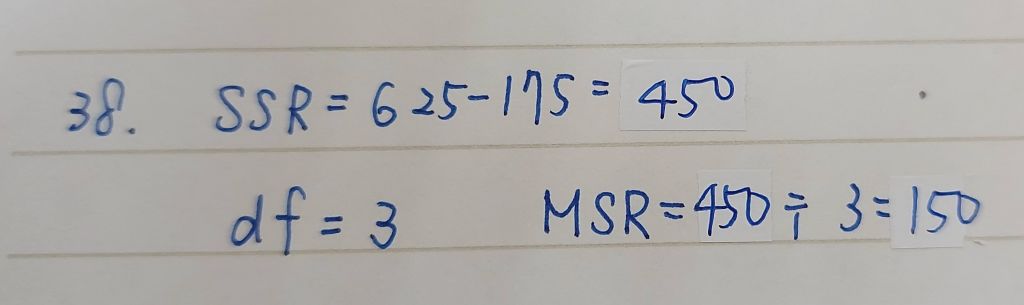 38. SSR = 625-175 = 450
df = 3 MSR = 450 ÷ 3 = 150